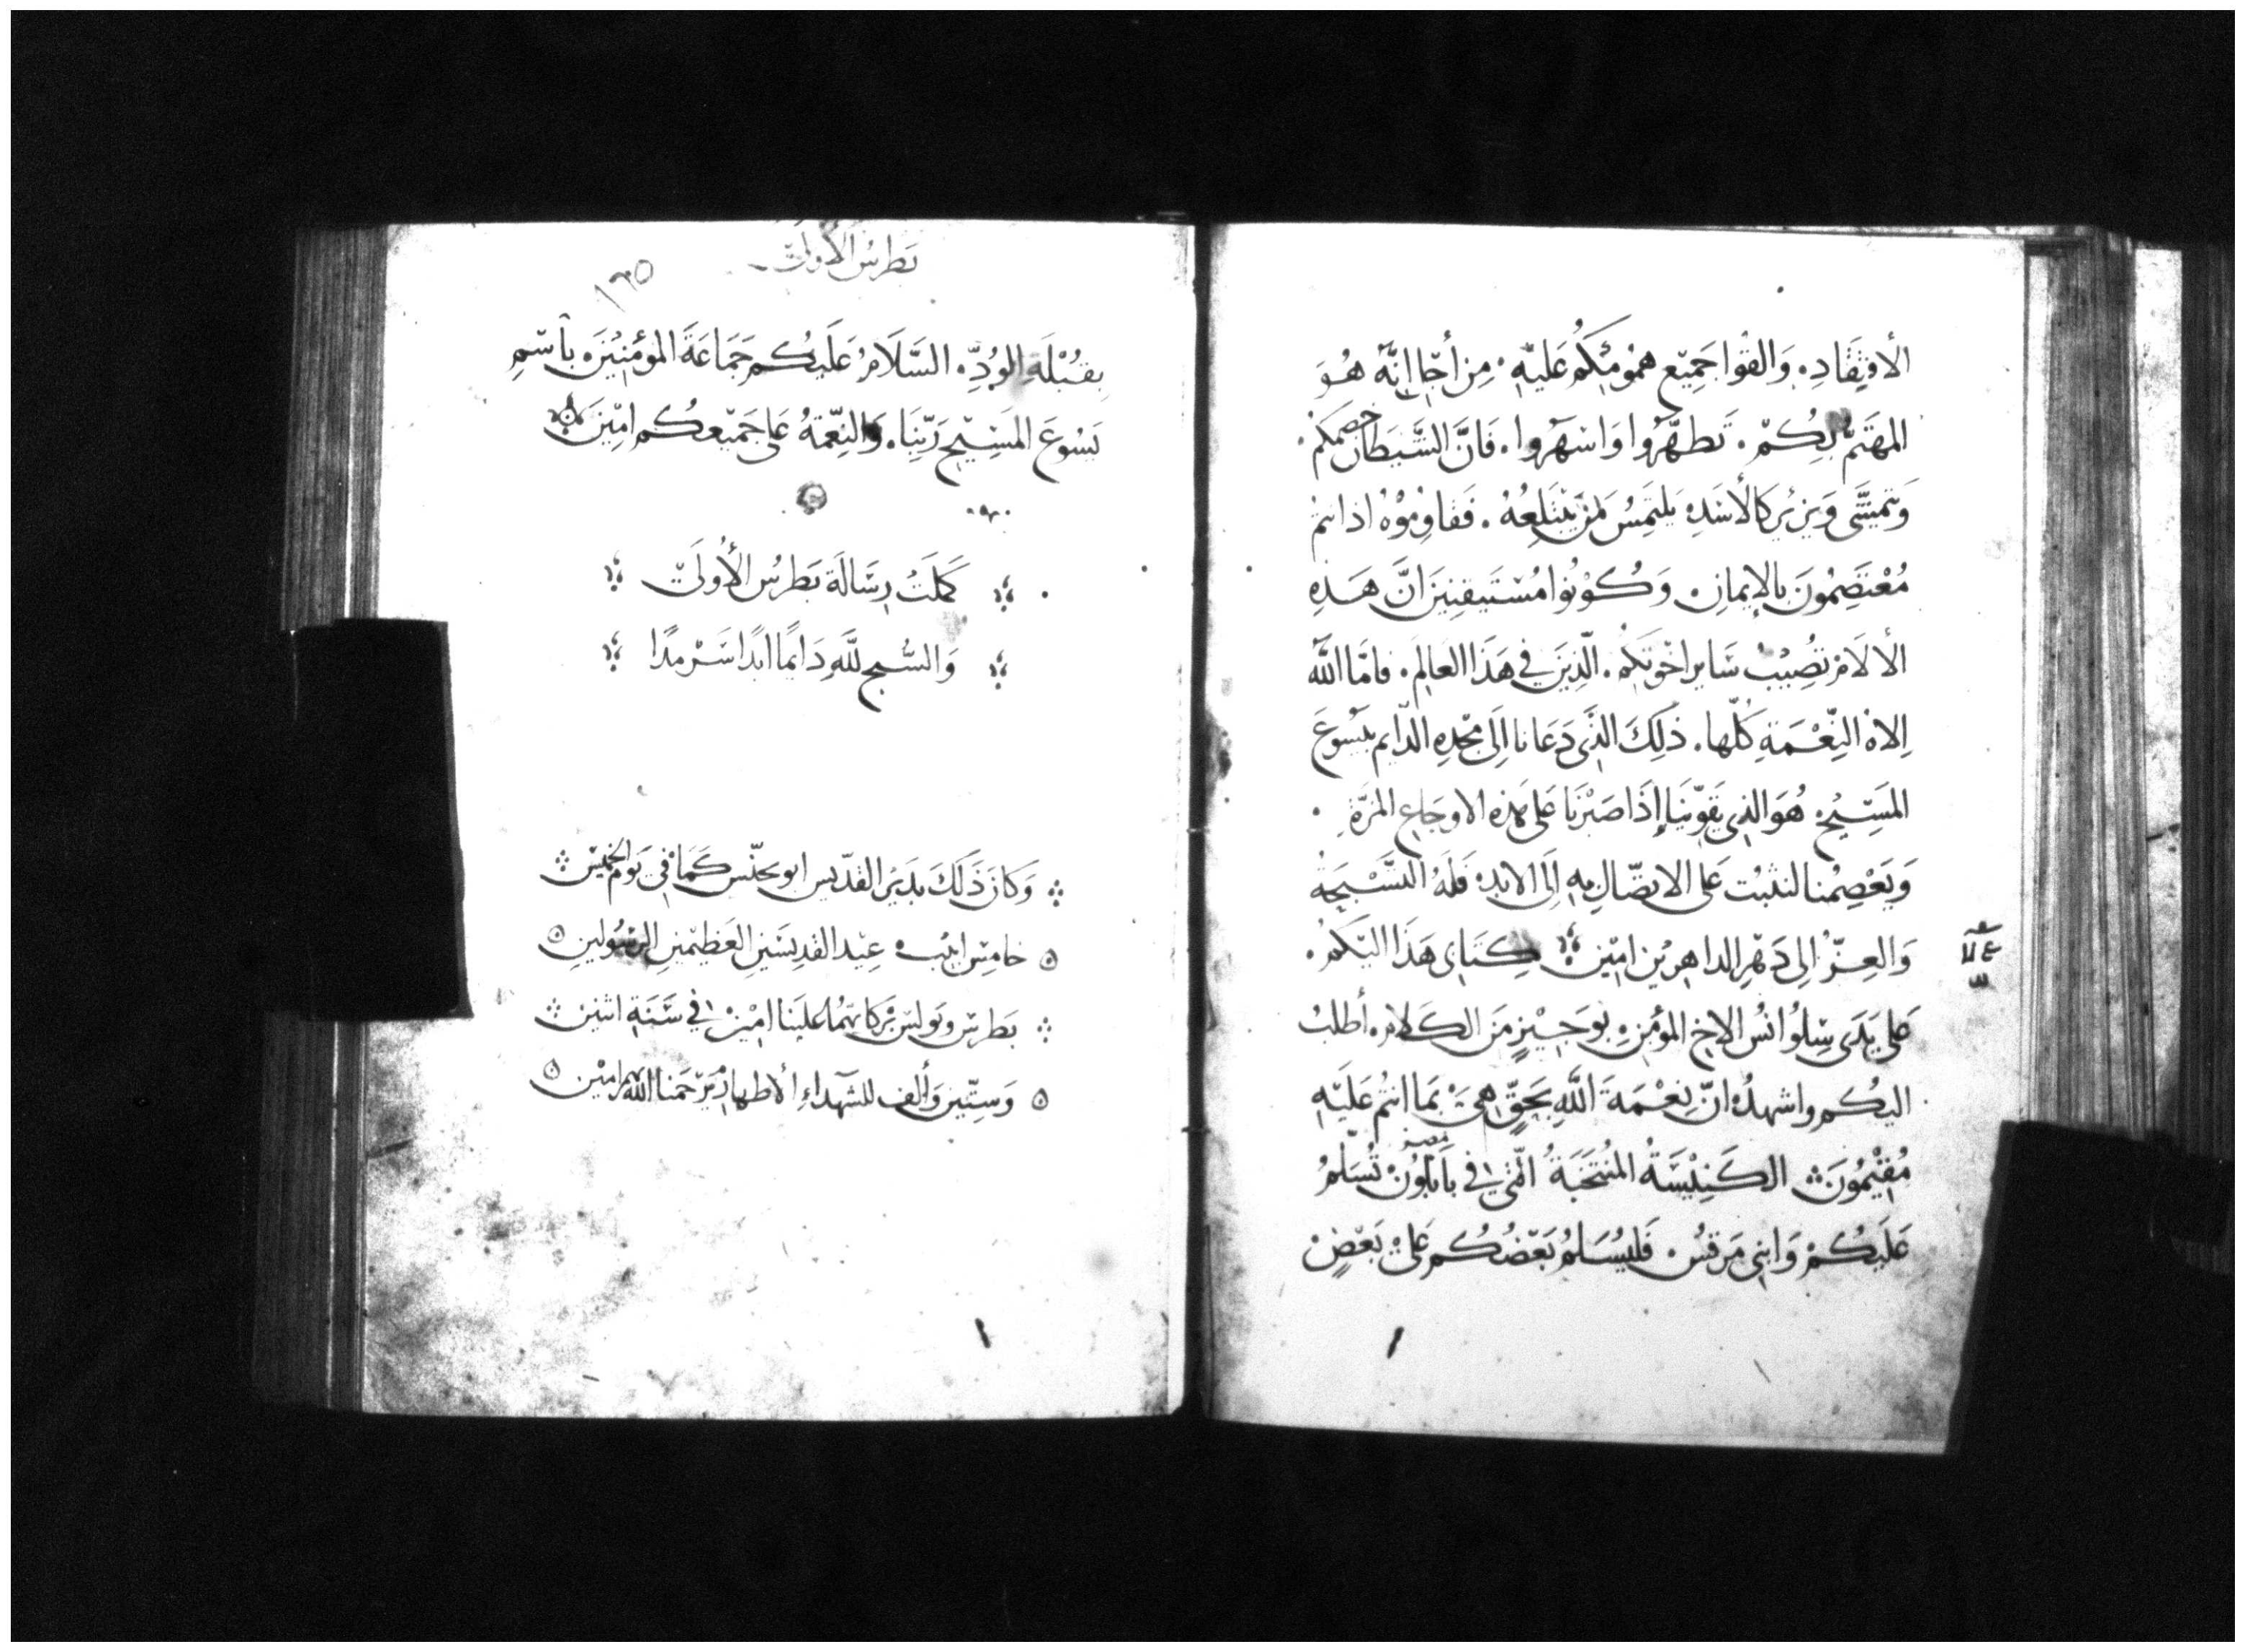 الأفتِقَادِ. وَالقوا جَمِيّع همُومَكُم عَليهِ. مِن أجّل إنَّه هُوَ
المهتَمّ بِكُمّ. تَطهَّرُوا وَاسْهرُوا. فَانَّ الشَّيطَان خصمكم.
وَيتمشَّى وَيزيُر كالأسَدِ يَلتَمِسُ لمَن يَبْتَلِعُهُ. فَقاوِمُوْهُ اذ انتم
مُعْتَصِمُونَ بالإيمانِ. وَكُوْنُوا مُسْتَيقنِينَ انَّ هَذِهِ
الألَامْ تصُيْبْ سَاير اخْوتكُم. الّذِينَ في هَذَا العَالَم. فامَّا اللّه
اِلاهْ النِّعْمَةِ كُلّها. ذَلِكَ الذَّى دَعَانا اِلَى مجّدِهِ الدّايم بيَسُوعَ
المَسِّيحْ. هُوَ الذى يَقوّينَا إذَا صَبْرنَا عَلى هَذه الاوجَاعِ المرَّة.
وَيَعْصِمُنا لنثبُت عَلى الاتصّالِ بِهِ اِلَى الابدِ. فَلَهُ التسَّبْيحَةُ
وَالعِزُّ الِى دَهْرِ الداهِرِيْن امّين كِتَابى هَذَا اليّكُم.
عَلى يَدَى سِلوُانُس الاخِ المؤمنِ. بوَجَيْزٍ مَن الكَلام. أطلبْ
اليكُم واشهدُ انّ نِعْمَةَ اللَّهِ بَحقٍّ هىَ بَما انتُم عَليَهِ
مُقِيْمُونَ الكَنِيْسَةُ المنُتَخَبَةُ التّي في بَابلُونْ تُسَلّمُ
مصر
عَليَكُمْ وَابنِى مَرقسُ. فَليُسَلمُ بَعّضُكُم عَليْ بَعّضٍ
بَطرسُ الأولَى
١٦٥
بِقُبْلَةِ الوُدِّ. السَّلَامُ عَلَيكُم جَمَاعَةَ المؤمنِيْنَ. بأسّمِ
يَسُوعَ المَسِيّحِ رَبِّنِا. وَالنِعّمَةُ عَلى جَميّعِكُم امِّينَ
كَمَلَتْ رِسَالَة بَطرسُ الأُولَىّ
وَالسُّبح للَّهِ دَايمًا ابَدًا سَرْمدًا
وَكانَ ذَلكَ بدَيرُ القدّيس ابو يحنّس كَمَا في يَوم الخميّس
خامِسّ ابيُب عِيْد القدِيسَينِ العَظيّمينِ الرسُولينِ
بَطرسّ وبَولسّ بَركاتهُمَا عَليَنا امِيْنْ في سَنَةِ اثنين
وَسِتّين وَألف للشهدَاءِ الأطهارْ يَرّحَمنا اللّه بهم امِيْن